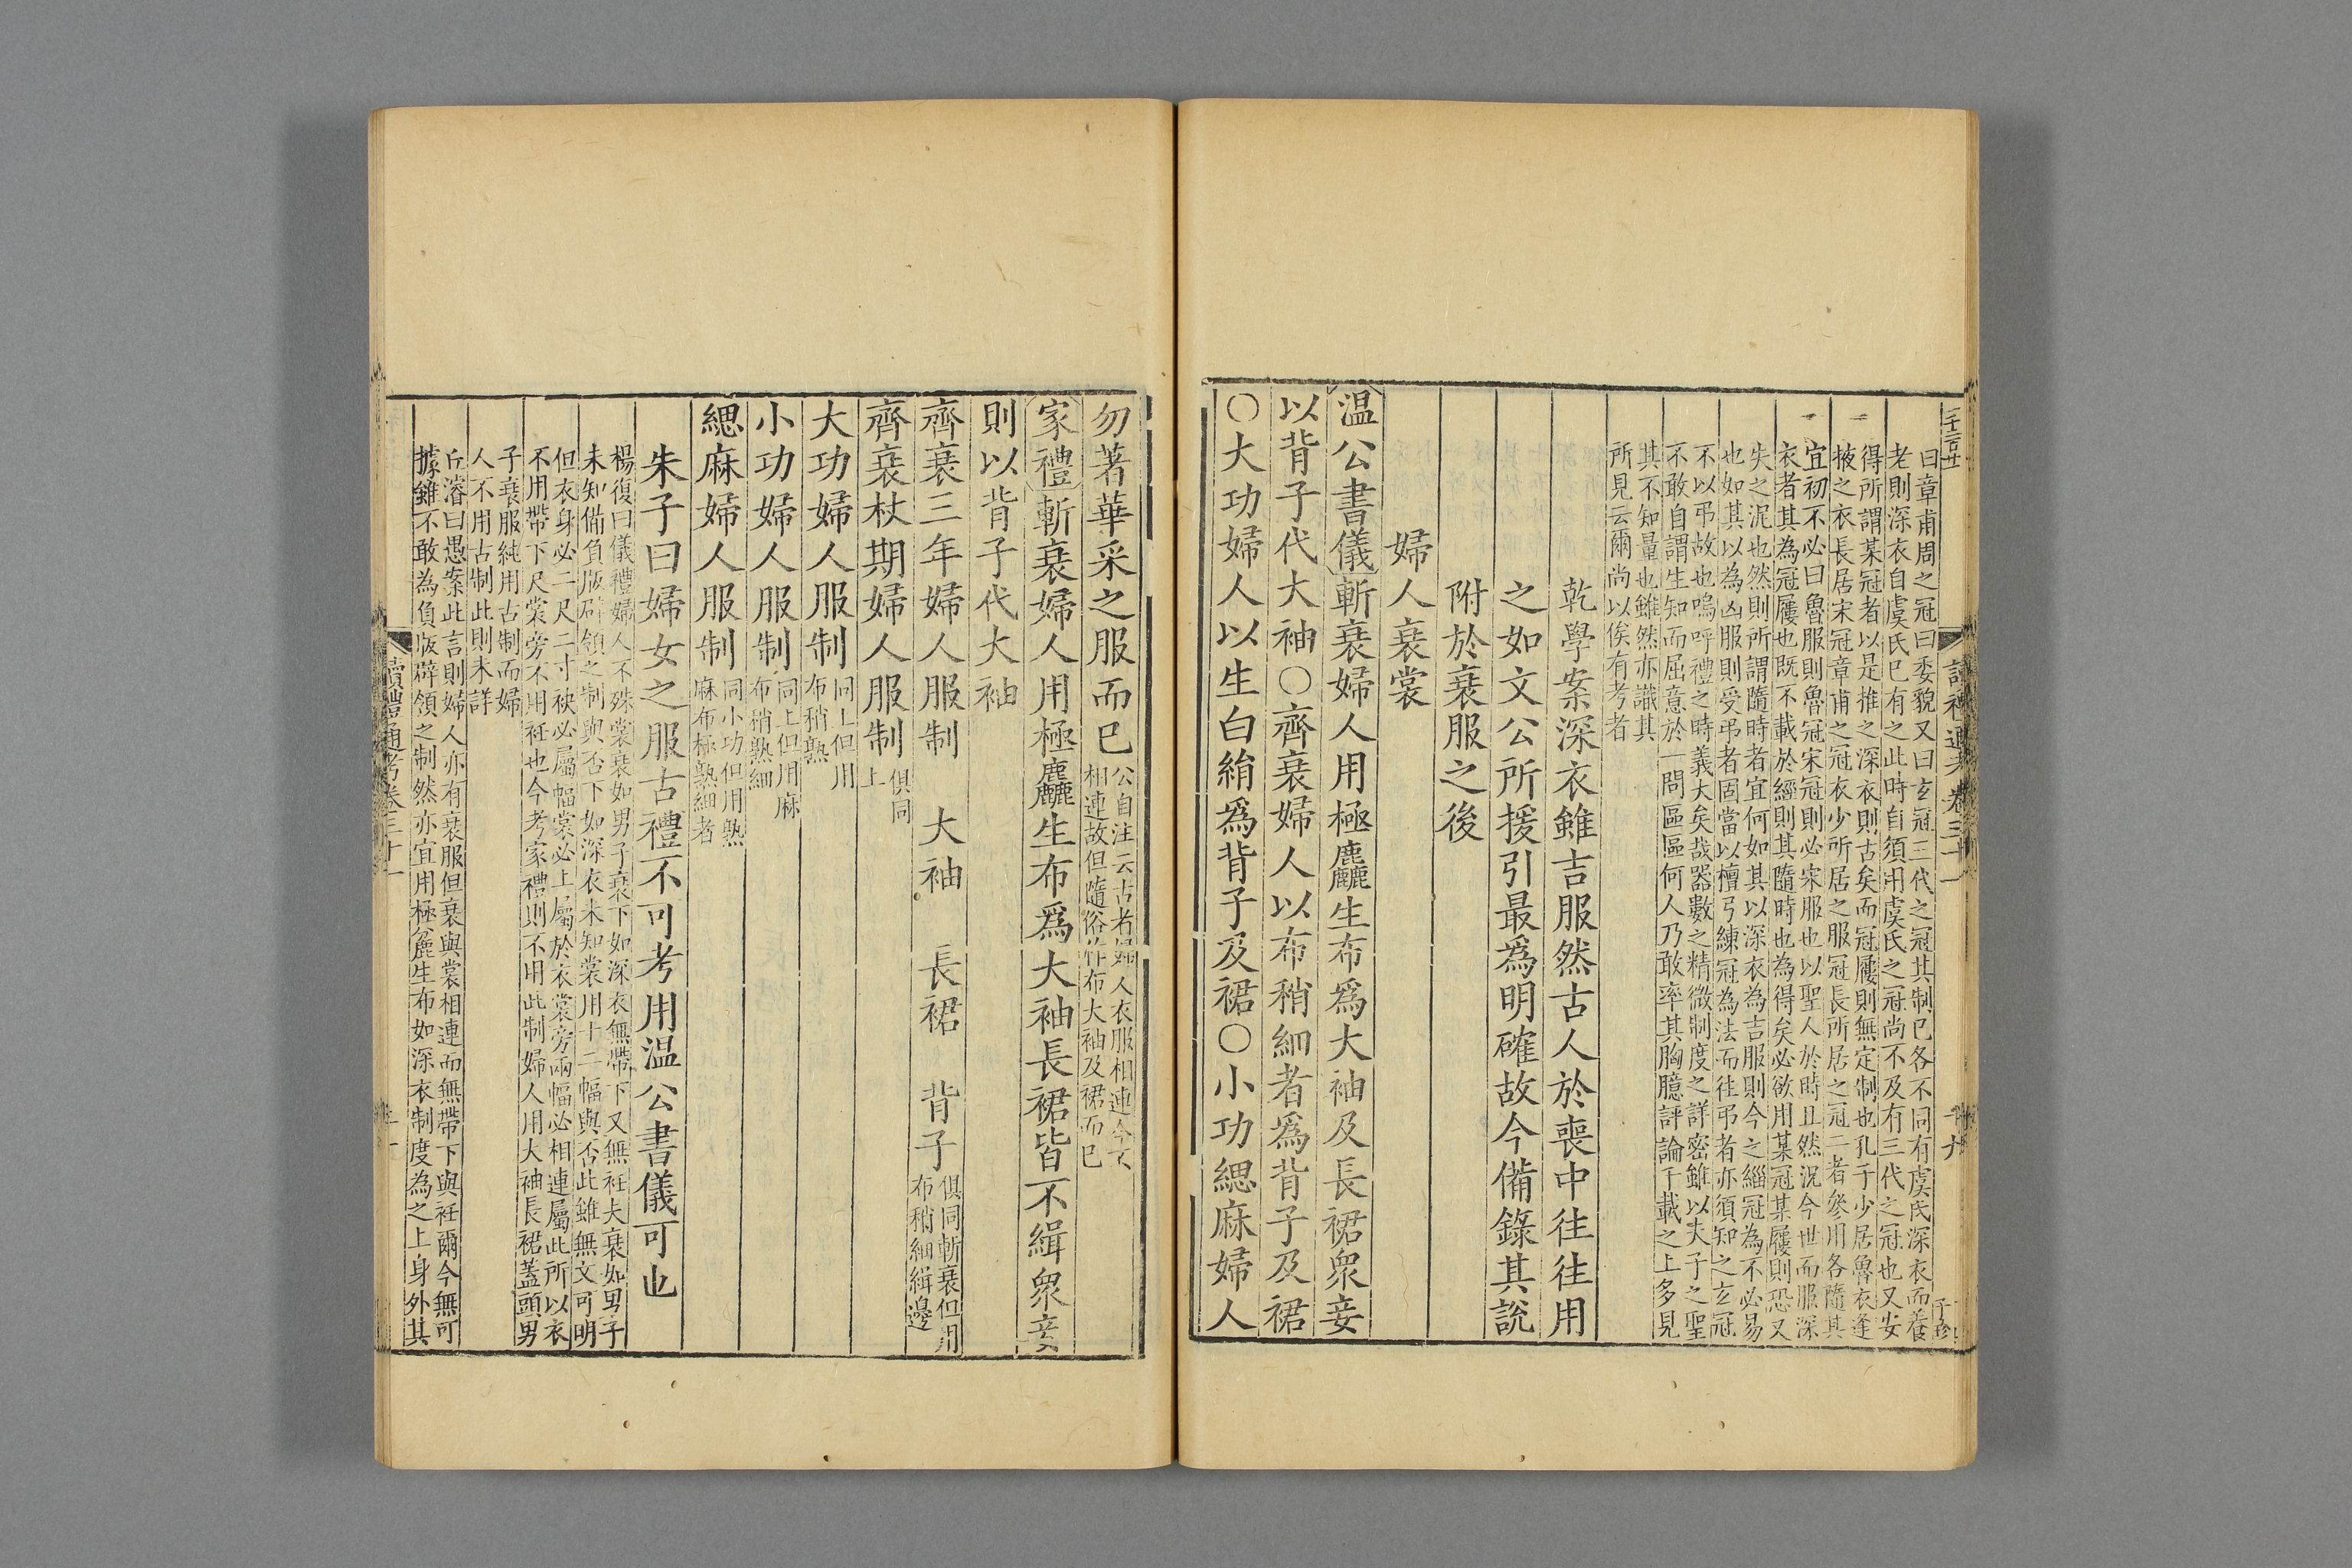 曰章甫周之冠曰委貌又曰玄冠三代之冠其制已各不同有虞氏深衣而養
老則深衣自虞氏已有之此時自須用虞氏之冠尚不及有三代之冠也又安
得所謂某冠者以是推之深衣則古矣而冠屨則無定制也孔子少居魯衣逢
掖之衣長居宋冠章甫之冠衣少所居之服冠長所居之冠二者參用各隨其
宜初不必曰魯服則魯冠宋冠則必宋服也以聖人於時且然況今世而服深
衣者其為冠屨也既不載於經則其隨時也為得矣必欲用某冠某屨則恐又
失之泥也然則所謂隨時者宜何如其以深衣為吉服則今之緇冠為不必易
也如其以為凶服則受弔者固當以檀弓練冠為法而往弔者亦須知之玄冠
不以弔故也嗚呼禮之時義大矣哉器數之精微制度之詳密雖以夫子之聖
不敢自謂生知而屈意於一問區區何人乃敢率其胸臆評論千載之上多見
其不知量也雖然亦識其
所見云爾尚以俟有考者
乾學案深衣雖吉服然古人於喪中往往用
之如文公所援引最爲明確故今備錄其説
附於衰服之後
婦人衰裳
温公書儀斬衰婦人用極麤生布爲大袖及長裙眾妾
以背子代大袖○齊衰婦人以布稍細者爲背子及裙
○大功婦人以生白絹爲背子及裙○小功緦麻婦人
勿著華采之服而已
公自注云古者婦人衣服相連今不
相連故但隨俗作布大袖及裙而已
家禮斬衰婦人用極麤生布爲大袖長裙皆不緝眾妾
則以背子代大袖
齊衰三年婦人服制 大袖 長裙 背子
俱同斬衰但用
布稍細緝邊
齊衰杖期婦人服制
俱同
上
大功婦人服制
同上但用
布稍熟
小功婦人服制
同上但用麻
布稍熟細
緦麻婦人服制
同小功但用熟
麻布極熟細者
朱子曰婦女之服古禮不可考用温公書儀可也
楊復曰儀禮婦人不殊裳衰如男子衰下如深衣無帶下又無衽夫衰如男子
未知備負版辟領之制與否下如深衣未知裳用十二幅與否此雖無文可明
但衣身必二尺二寸袂必屬幅裳必上屬於衣裳旁兩幅必相連屬此所以衣
不用帶下尺裳旁不用衽也今考家禮則不用此制婦人用大袖長裙蓋頭男
子衰服純用古制而婦
人不用古制此則未詳
丘濬曰愚案此言則婦人亦有衰服但衰與裳相連而無帶下與衽爾今無可
據雖不敢為負版辟領之制然亦宜用極麤生布如深衣制度為之上身外其
讀禮通考卷三十一